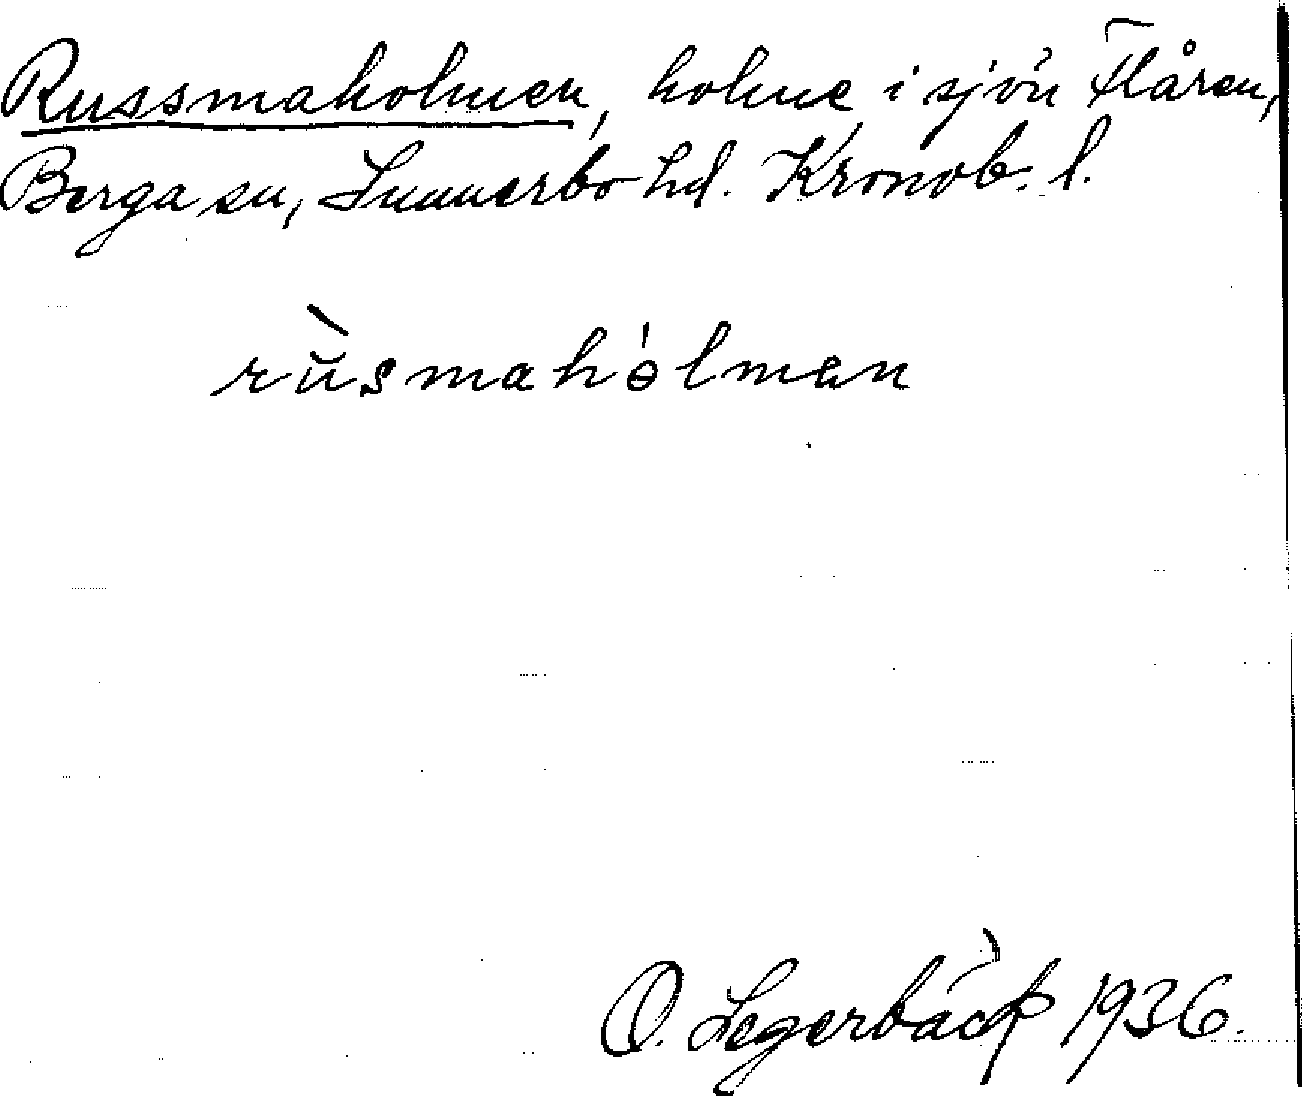 Russmaholmen, holme i sjön Flåren,
Berga sn, Sunnerbo hd. Kronob. l.
rùsmahólman
O. Legerbäck 1936.